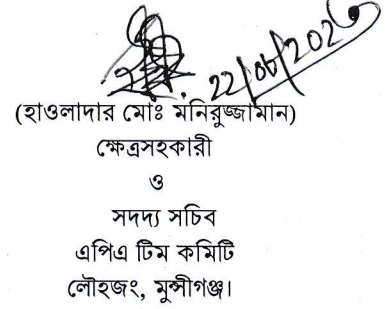 22/06/2023
(হাওলাদার মোঃ মনিরুজ্জামান)
ক্ষেত্রসহকারী
ও
সদদ্য সচিব
এপিএ টিম কমিটি
লৌহজং, মুন্সীগঞ্জ।